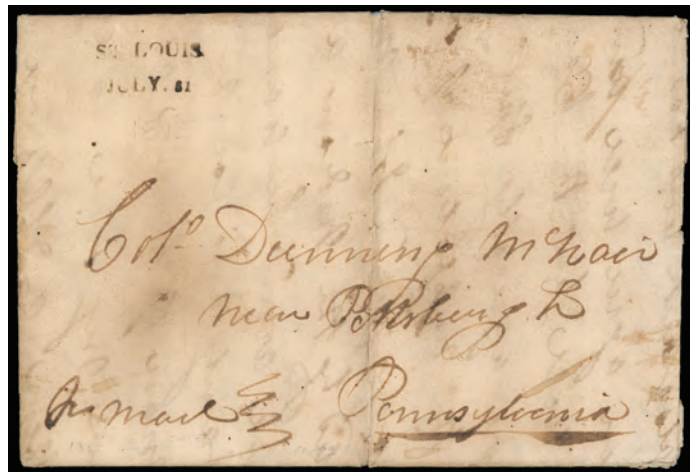 ST. LOUIS.
JULY. 31
Colº. Dunning McNair
near Pittsburg
Pr mail Pennsylvania